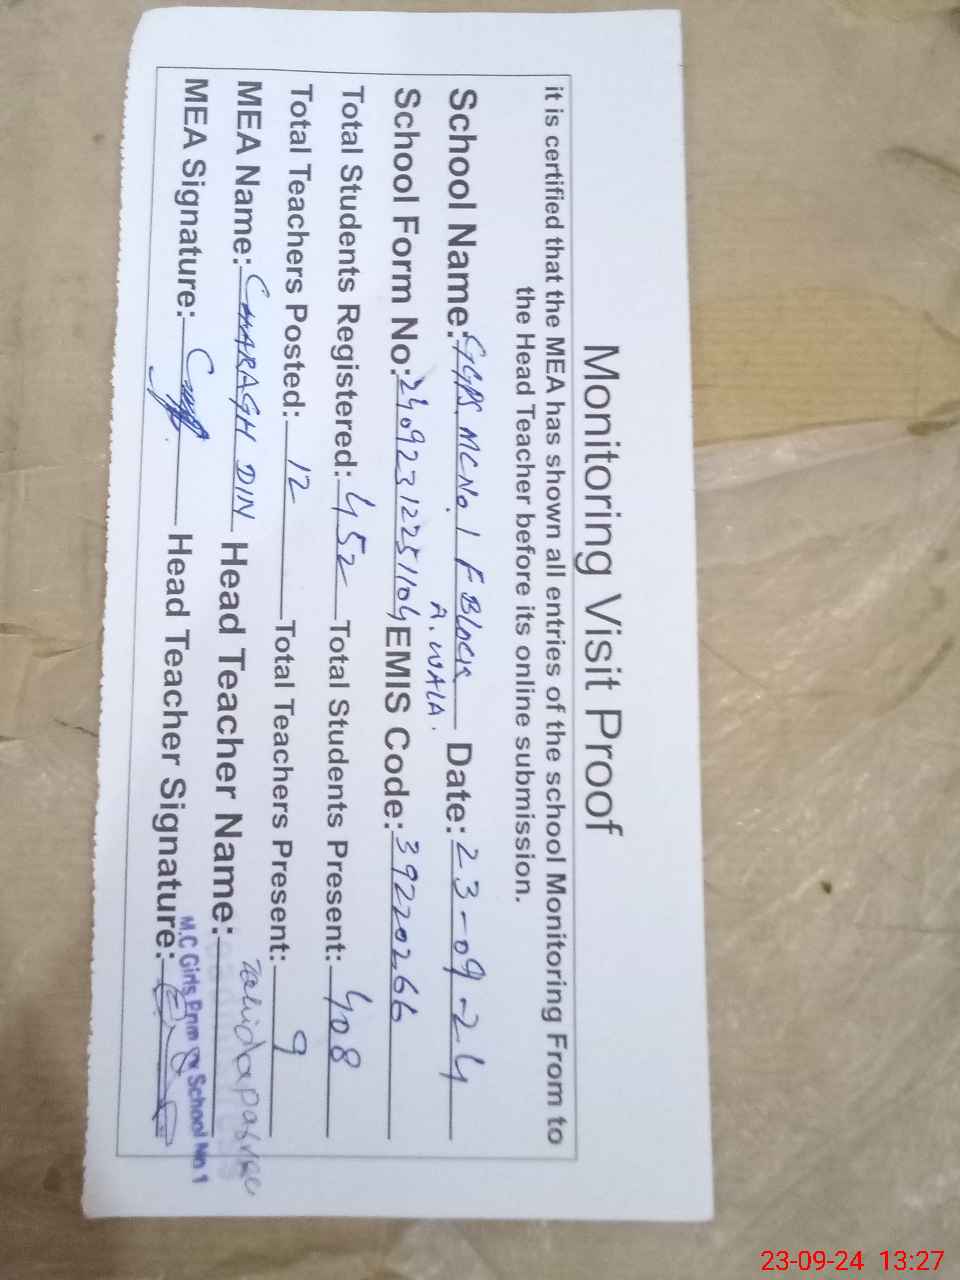 Monitoring Visit Proof
it is certified that the MEA has shown all entries of the school Monitoring From to
the Head Teacher before its online submission.
School Name: GGPS MCNo. 1 F Block Date: 23-09-24
A. WALA.
School Form No: 24092312251104 EMIS Code: 39220266
Total Students Registered: 452 Total Students Present: 408
Total Teachers Posted: 12 Total Teachers Present: 9
MEA Name: CHARAGH DIN Head Teacher Name: Zahida
MEA Signature: Head Teacher Signature:
M.C Girls School No 1
23-09-24 13:27